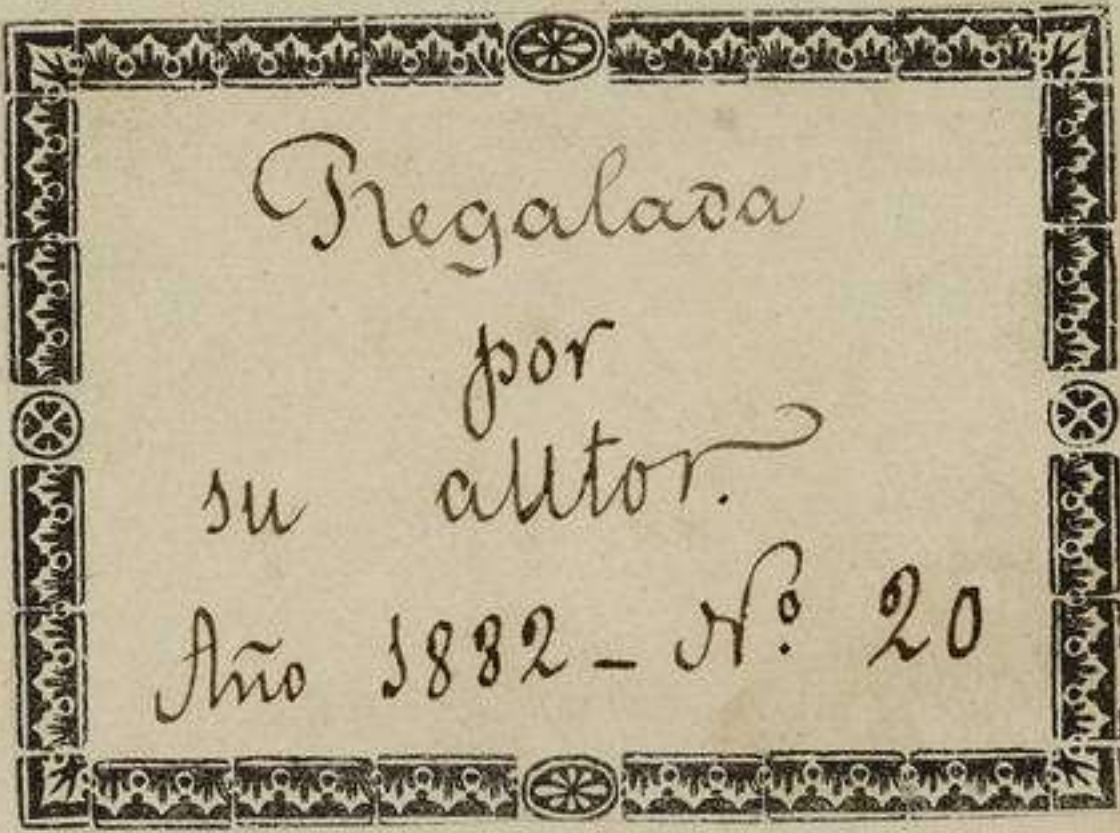 Regalada
por
su autor.
Año 1882 - Nº 20